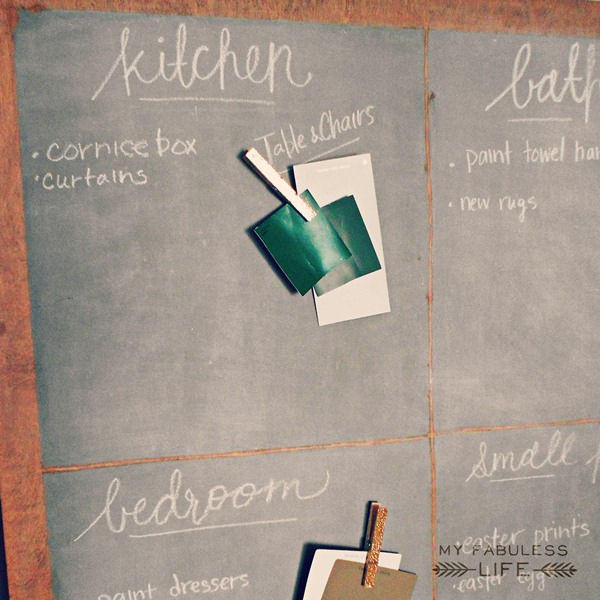 kitchen
• cornice box
• curtains
Table & Chairs
bath
• paint towel
• new rugs
bedroom
paint dressers
small
• easter prints
• easter egg
MY FABULESS
LIFE